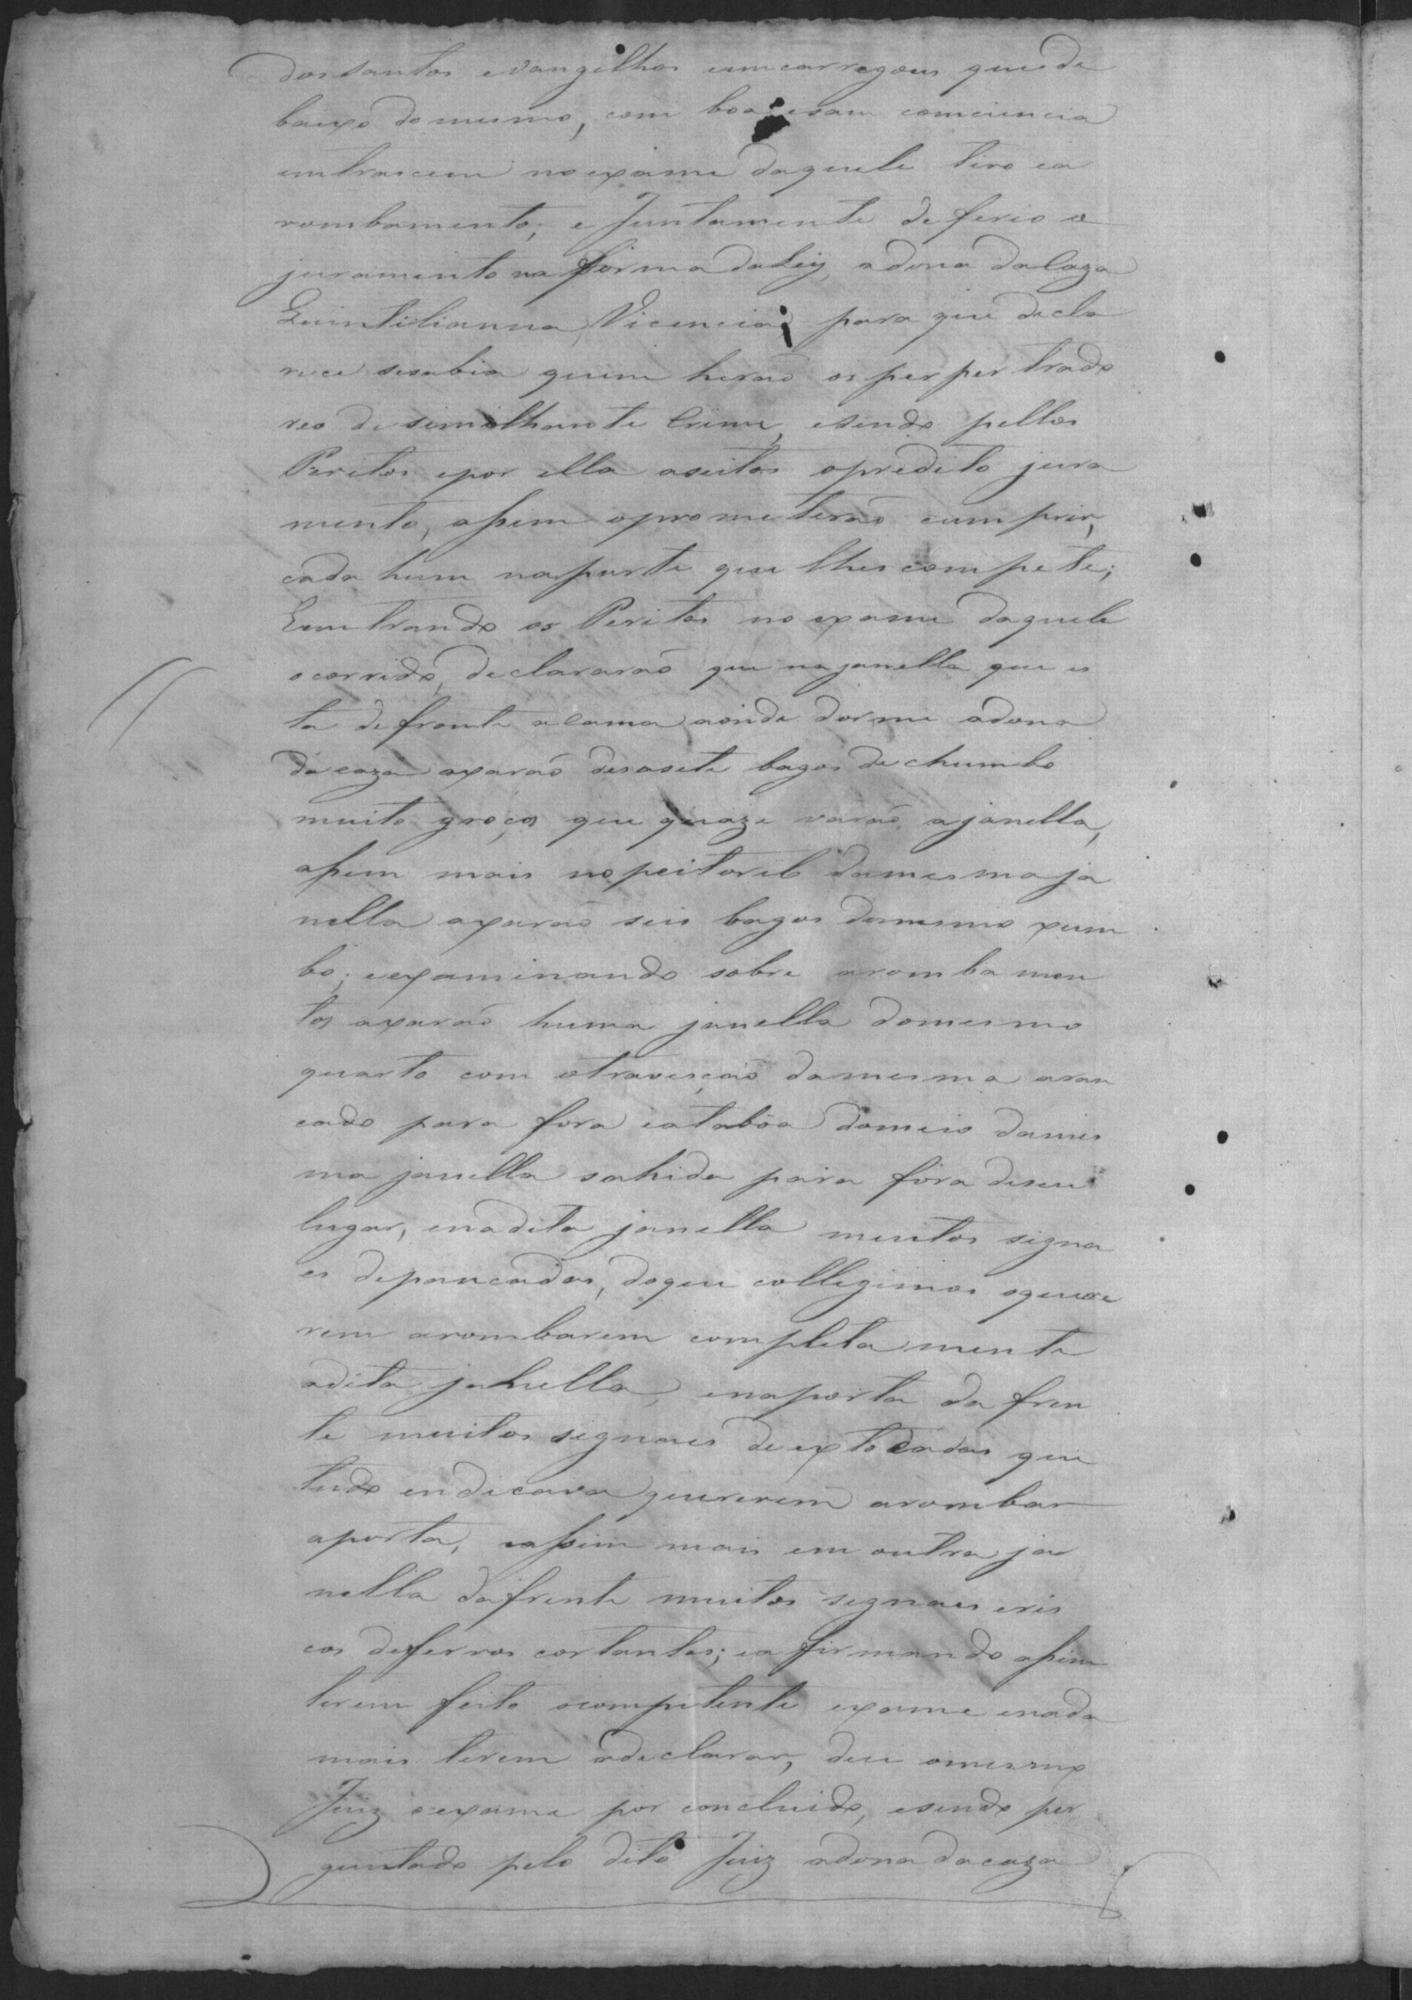 dos santos evangelhos emcarregou que de
baixo do mesmo, com boa esam comciencia
emtrascem no exame daquele tiro ea
rombamento; e Juntamente deferio o
juramento na forma da Ley, adona da Caza
Quintilianna Vicencia; para que decla
rice sesabia quem herão os perpertrado
res de similhante Crime, esendo pellos
Peritos epor ella aseitos opredito jura
mento, assim oprometerão cumprir,
cada hum naparte que lhes compete;
Eemtrando os Peritos no exame daquele
ocorrido, declararão que najanella que es
ta defronte acama aonde dorme adona
da caza axarão desasete bagos de chumbo
muito groços que quaze varão ajanella,
assim mais no peitoril damesma ja
nella axarão seis bagos domesmo xum
bo; eexaminando sobre aromba men
tos axarão huma janella domesmo
quarto com atravesção damesma aran
cado para fora eataboa domeio dames
ma janella sahida para fora deseu
lugar, enadita janella muitos signa
es depancadas, doque collegimos oquere
rem arombarem completamente
adita janella, enaporta da fren
te muitos signaes de extocadas que
tudo endicava quererem arombar
aporta, eassim mais em outra ja
nella dafrente muitos signaes eris
cos deferros cortantes; eafirmando assim
terem feito ocompetente exame enada
mais terem adeclarar, deu omesmo
Juiz oexame por concluido, esendo per
guntado pelo dito Juiz adona dacaza